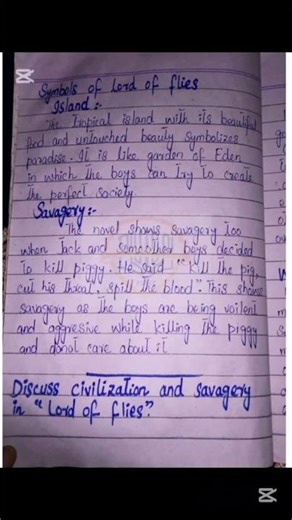 Symbols of Lord of flies
Island :-
The Tropical island with its beautiful
and and untouched beauty symbolizes
paradise. It is like garden of Eden
in which the boys can try to create
the perfect society.
Savagery:-
The novel shows savagery too
when Jack and some other boys decided
to kill piggy. He said "Kill the pig,
cut his throat, spill the blood". This shows
savagery as the boys are being voilent
and aggresive while killing the piggy
and donot care about it
Discuss civilization and savagery
in "Lord of flies"?